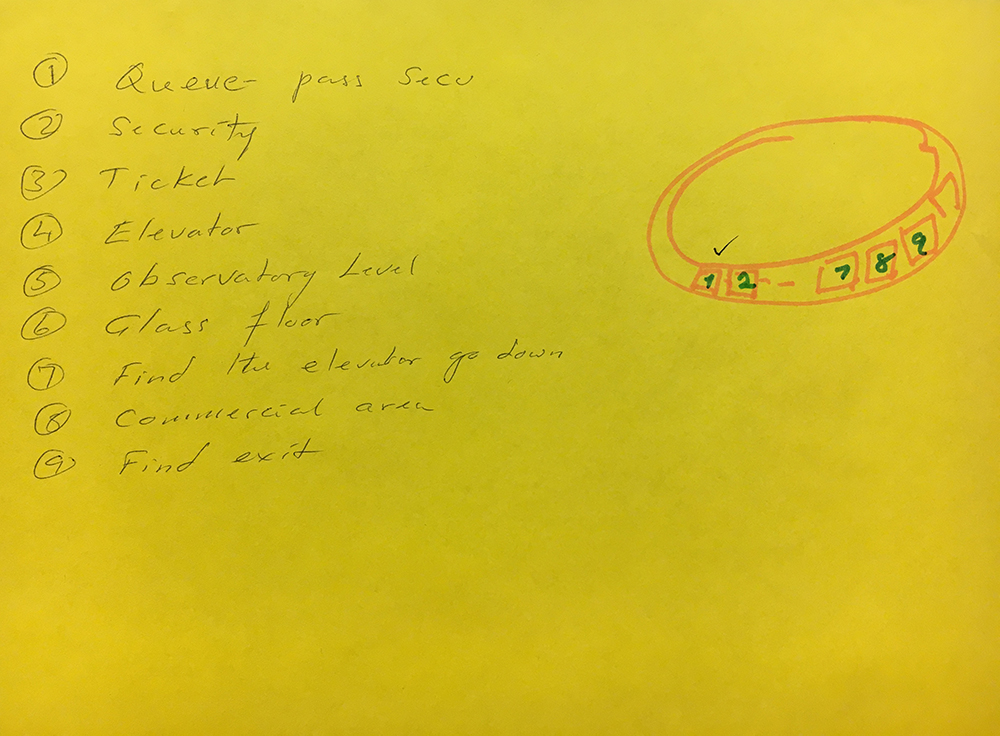 ① Queue- pass Secu
② Security
③ Ticket
④ Elevator
⑤ Observatory Level
⑥ Glass floor
⑦ Find the elevator go down
⑧ Commercial area
⑨ Find exit
✓
1 2 - - 7 8 9